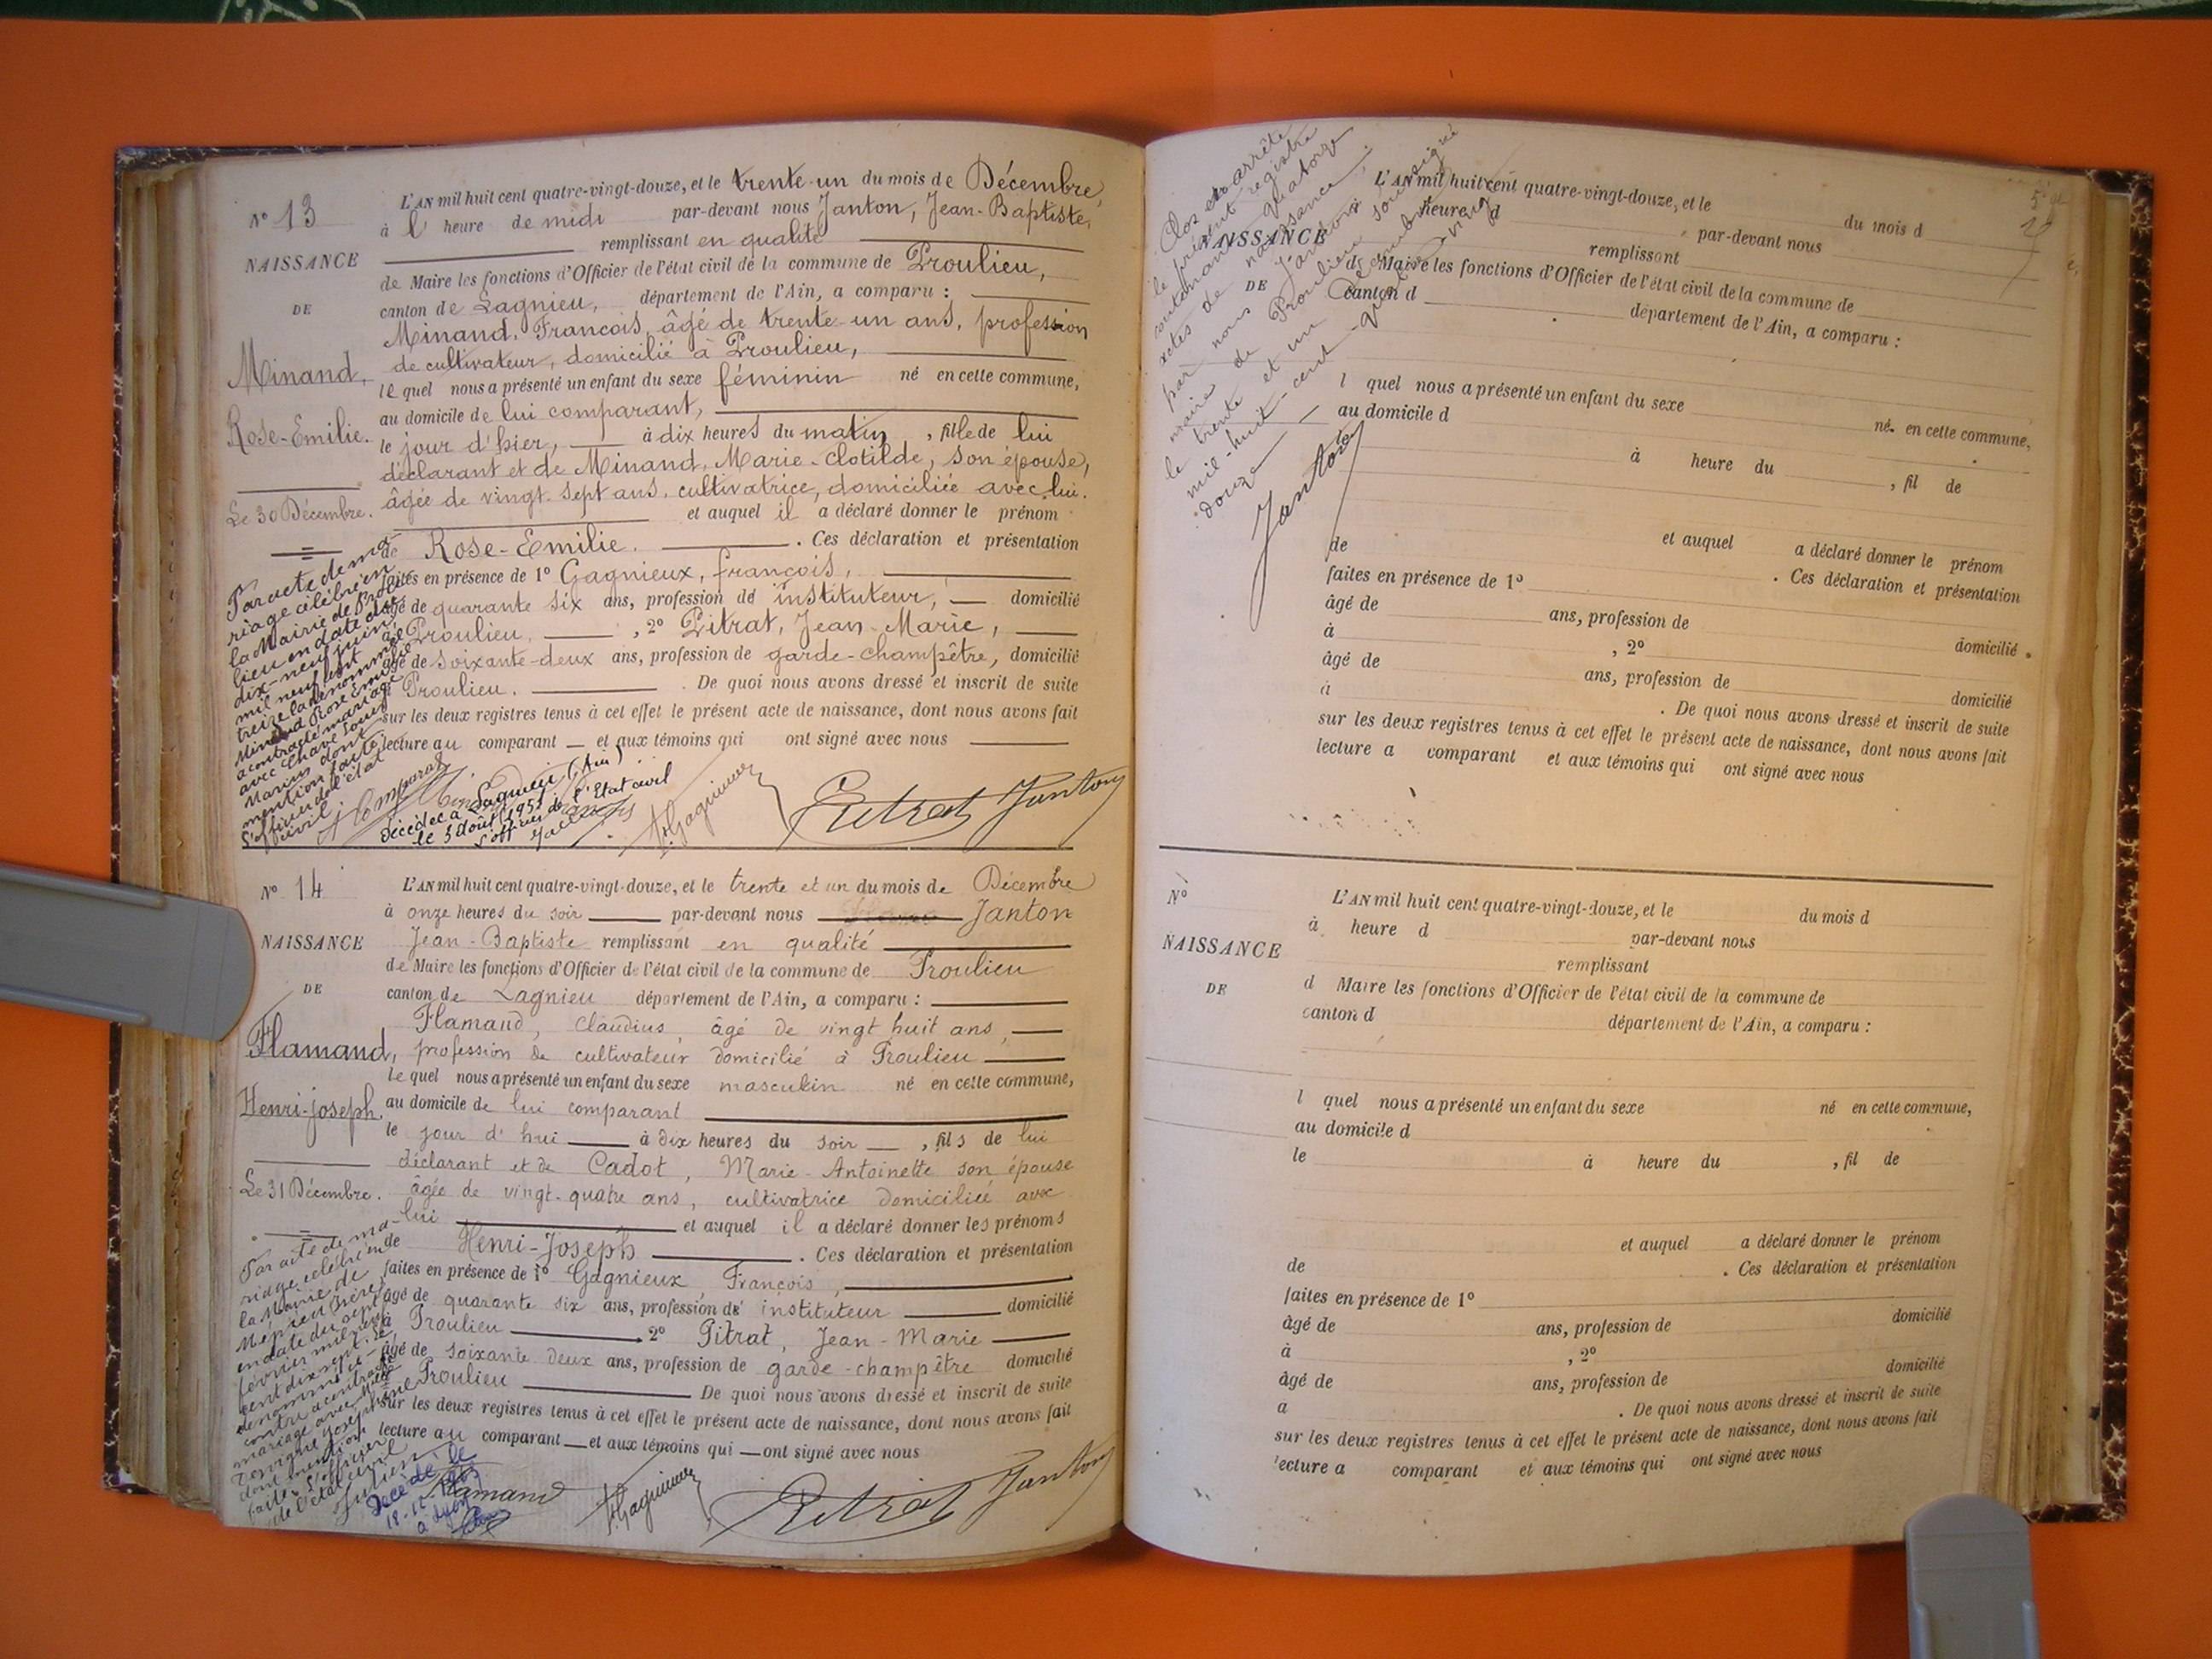 L'AN mil huit cent quatre-vingt-douze, et le trente-un du mois de Décembre,
N° 13
à l' heure de midi par-devant nous Janton, Jean-Baptiste,
remplissant en qualité
NAISSANCE
de Maire les fonctions d'Officier de l'état civil de la commune de Proulieu,
DE
canton de Lagnieu, département de l'Ain, a comparu :
Minand, François, âgé de trente-un ans, profession
de cultivateur, domicilié à Proulieu,
Minand,
le quel nous a présenté un enfant du sexe féminin né en cette commune,
au domicile de lui comparant,
Rose-Emilie.
le jour d'hier, à dix heures du matin, fille de lui
déclarant et de Minand, Marie-Clotilde, son épouse,
âgée de vingt-sept ans, cultivatrice, domiciliée avec lui.
Le 30 Décembre.
et auquel il a déclaré donner le prénom
de Rose-Emilie. . Ces déclaration et présentation
faites en présence de 1° Gagnieux, François,
âgé de quarante six ans, profession de instituteur, domicilié
à Proulieu, , 2° Pitrat, Jean-Marie,
âgé de soixante-deux ans, profession de garde-champêtre, domicilié
à Proulieu. . De quoi nous avons dressé et inscrit de suite
sur les deux registres tenus à cet effet le présent acte de naissance, dont nous avons fait
lecture au comparant et aux témoins qui ont signé avec nous
Par acte de ma
riage célébré en
la Mairie de Prou
lieu en date du
dix-neuf juin
mil neuf cent
treize la dénommée
Minand Rose Emilie
a contracté mariage
avec Chavé Louis
Marius dont
mention faite.
L'officier de l'état
civil
Décédée à Lagnieu (Ain)
le 5 août 1951
L'off. de l'Etat civil
F. Gagnieux
Pitrat Janton
N° 14
L'AN mil huit cent quatre-vingt-douze, et le trente et un du mois de Décembre
à onze heures du soir par-devant nous Janton
NAISSANCE
Jean-Baptiste remplissant en qualité
de Maire les fonctions d'Officier de l'état civil de la commune de Proulieu
DE
canton de Lagnieu département de l'Ain, a comparu :
Flamand, Claudius, âgé de vingt huit ans,
Flamand,
profession de cultivateur domicilié à Proulieu
le quel nous a présenté un enfant du sexe masculin né en cette commune,
Henri-joseph.
au domicile de lui comparant
le jour d'hui à dix heures du soir , fils de lui
déclarant et de Cadot, Marie-Antoinette son épouse
Le 31 Décembre.
âgée de vingt-quatre ans, cultivatrice domiciliée avec
lui et auquel il a déclaré donner les prénoms
de Henri-Joseph . Ces déclaration et présentation
faites en présence de 1° Gagnieux, François,
âgé de quarante six ans, profession de instituteur domicilié
à Proulieu 2° Pitrat, Jean-Marie
âgé de soixante deux ans, profession de garde-champêtre domicilié
à Proulieu De quoi nous avons dressé et inscrit de suite
sur les deux registres tenus à cet effet le présent acte de naissance, dont nous avons fait
lecture au comparant et aux témoins qui ont signé avec nous
Par acte de ma-
riage célébré en
la Mairie de
en date du sept
février mil neuf
cent dix sept. Le
dénommé ci-
contre a contracté
mariage avec
dont mention
faite. L'officier
de l'état civil
Décédé le
à Lyon
Flamand F. Gagnieux Pitrat Janton
Clos et arrêté
le présent registre
contenant quatorze
actes de naissance,
par nous Janton soussigné
maire de Proulieu
le trente et un Décembre
mil-huit-cent-quatre-vingt
douze
Janton
L'AN mil huit cent quatre-vingt-douze, et le du mois d
heure d par-devant nous
NAISSANCE
remplissant
d Maire les fonctions d'Officier de l'état civil de la commune de
DE
canton d département de l'Ain, a comparu :
l quel nous a présenté un enfant du sexe né en cette commune,
au domicile d
le à heure du , fil de
et auquel a déclaré donner le prénom
de . Ces déclaration et présentation
faites en présence de 1°
âgé de ans, profession de domicilié
à , 2°
âgé de ans, profession de domicilié
à . De quoi nous avons dressé et inscrit de suite
sur les deux registres tenus à cet effet le présent acte de naissance, dont nous avons fait
lecture a comparant et aux témoins qui ont signé avec nous
N°
L'AN mil huit cent quatre-vingt-douze, et le du mois d
à heure d par-devant nous
NAISSANCE
remplissant
DE
d Maire les fonctions d'Officier de l'état civil de la commune de
canton d département de l'Ain, a comparu :
l quel nous a présenté un enfant du sexe né en cette commune,
au domicile d
le à heure du , fil de
et auquel a déclaré donner le prénom
de . Ces déclaration et présentation
faites en présence de 1°
âgé de ans, profession de domicilié
à , 2°
âgé de ans, profession de domicilié
a . De quoi nous avons dressé et inscrit de suite
sur les deux registres tenus à cet effet le présent acte de naissance, dont nous avons fait
lecture a comparant et aux témoins qui ont signé avec nous